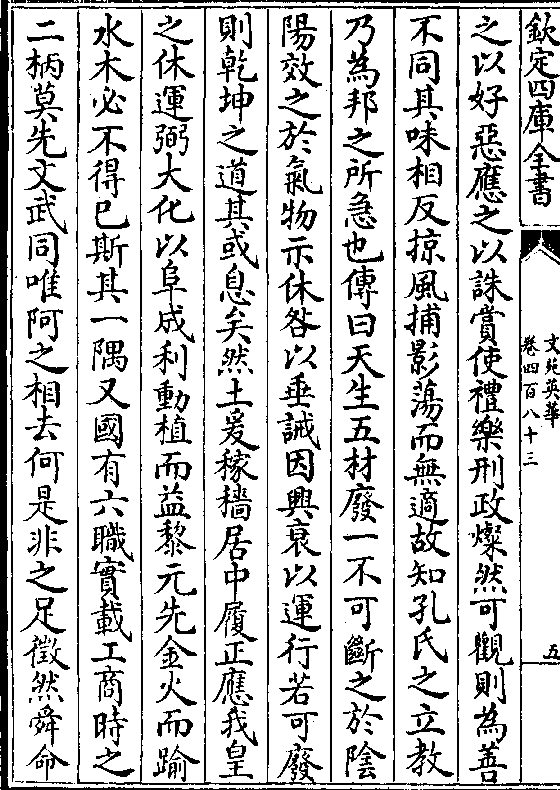 欽定四庫全書
文苑英華
卷四百八十三
五
之以好惡應之以誅賞使禮樂刑政燦然可觀則為善
不同其味相反掠風捕影蕩而無適故知孔氏之立教
乃為邦之所急也傳曰天生五材廢一不可斷之於陰
陽效之於氣物示休咎以垂誡因興衰以運行若可廢
則乾坤之道其或息矣然土爰稼穡居中履正應我皇
之休運弼大化以阜成利動植而益黎元先金火而踰
水木必不得已斯其一隅又國有六職實載工商時之
二柄莫先文武同唯阿之相去何是非之足徵然舜命